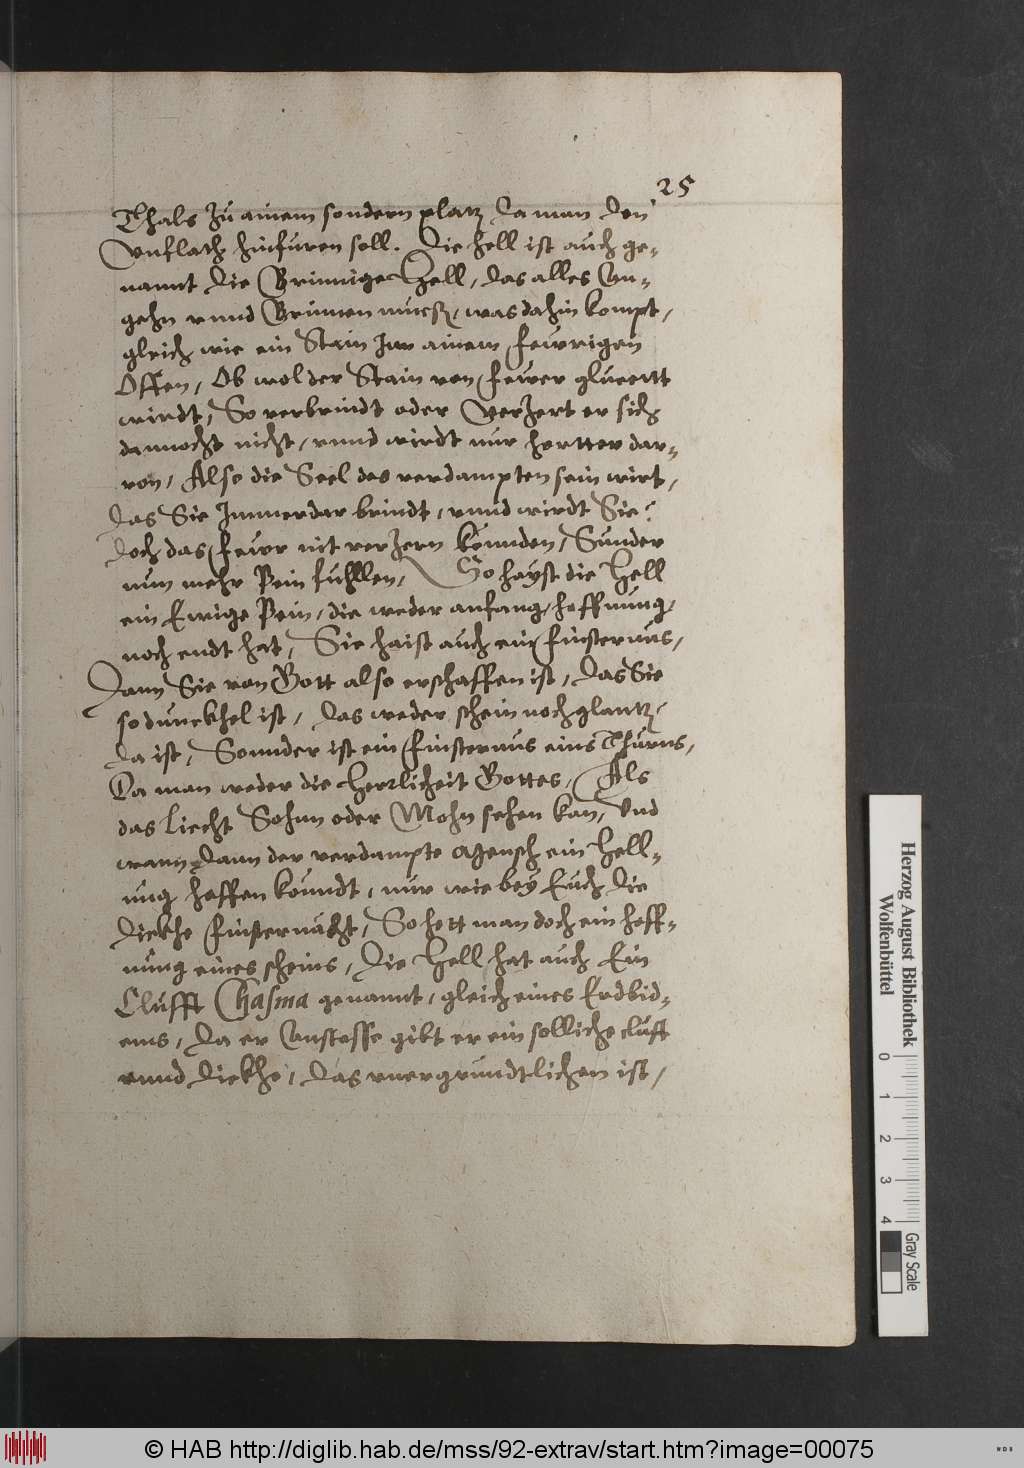 25
Thals zu ainem sondern platz da man den
Vnflath hinfuren soll. Die hell ist auch ge-
nannt die Brinnige Hell, das alles An-
gehn vnnd Brinnen muess, was dahin kompt,
gleich wie ein Stain Inn ainem fewrigen
Offen, Ob wol der Stain von fewer glueentt
wirdt, So verbrindt oder Verzert er sich
dannocht nicht, vnnd wirdt nur hertter dar-
von, Also die Seel des verdampten sein wirt,
das Sie Immerdar brindt, vnnd wirdt Sie
doch das fewr nit verzern könnden, Sunder
nun mehr Pein fuhllen, So hayst die Hell
ein Ewige Pein, die weder anfang, hoffnung,
noch endt hat, Sie haist auch ein finsternus,
Dann Sie von Gott also erschaffen ist, das Sie
so dunckhel ist, das weder schein noch glantz,
da ist, Sonnder ist ein finsternus eins Thurns,
Da man weder die herrlicheit Gottes, Als
das Liecht Sohnn oder Mohn sehen kan, Vnd
wann dann der verdampte Mensch ein Hell-
ung hoffen kanndt, nur wie bey Euch die
dickhe finsternächt, So hett man doch ein hoff-
nung eines scheins, Die Hell hat auch Ein
Clufft Chasma genannt, gleich eines Erdbid-
ems, da er Anstosse gibt er ein solliche cluft
vnnd dickhe, das vnergrundtlichen ist,
Herzog August Bibliothek
Wolfenbüttel
0 1 2 3 4
Gray Scale
© HAB http://diglib.hab.de/mss/92-extrav/start.htm?image=00075
WDB